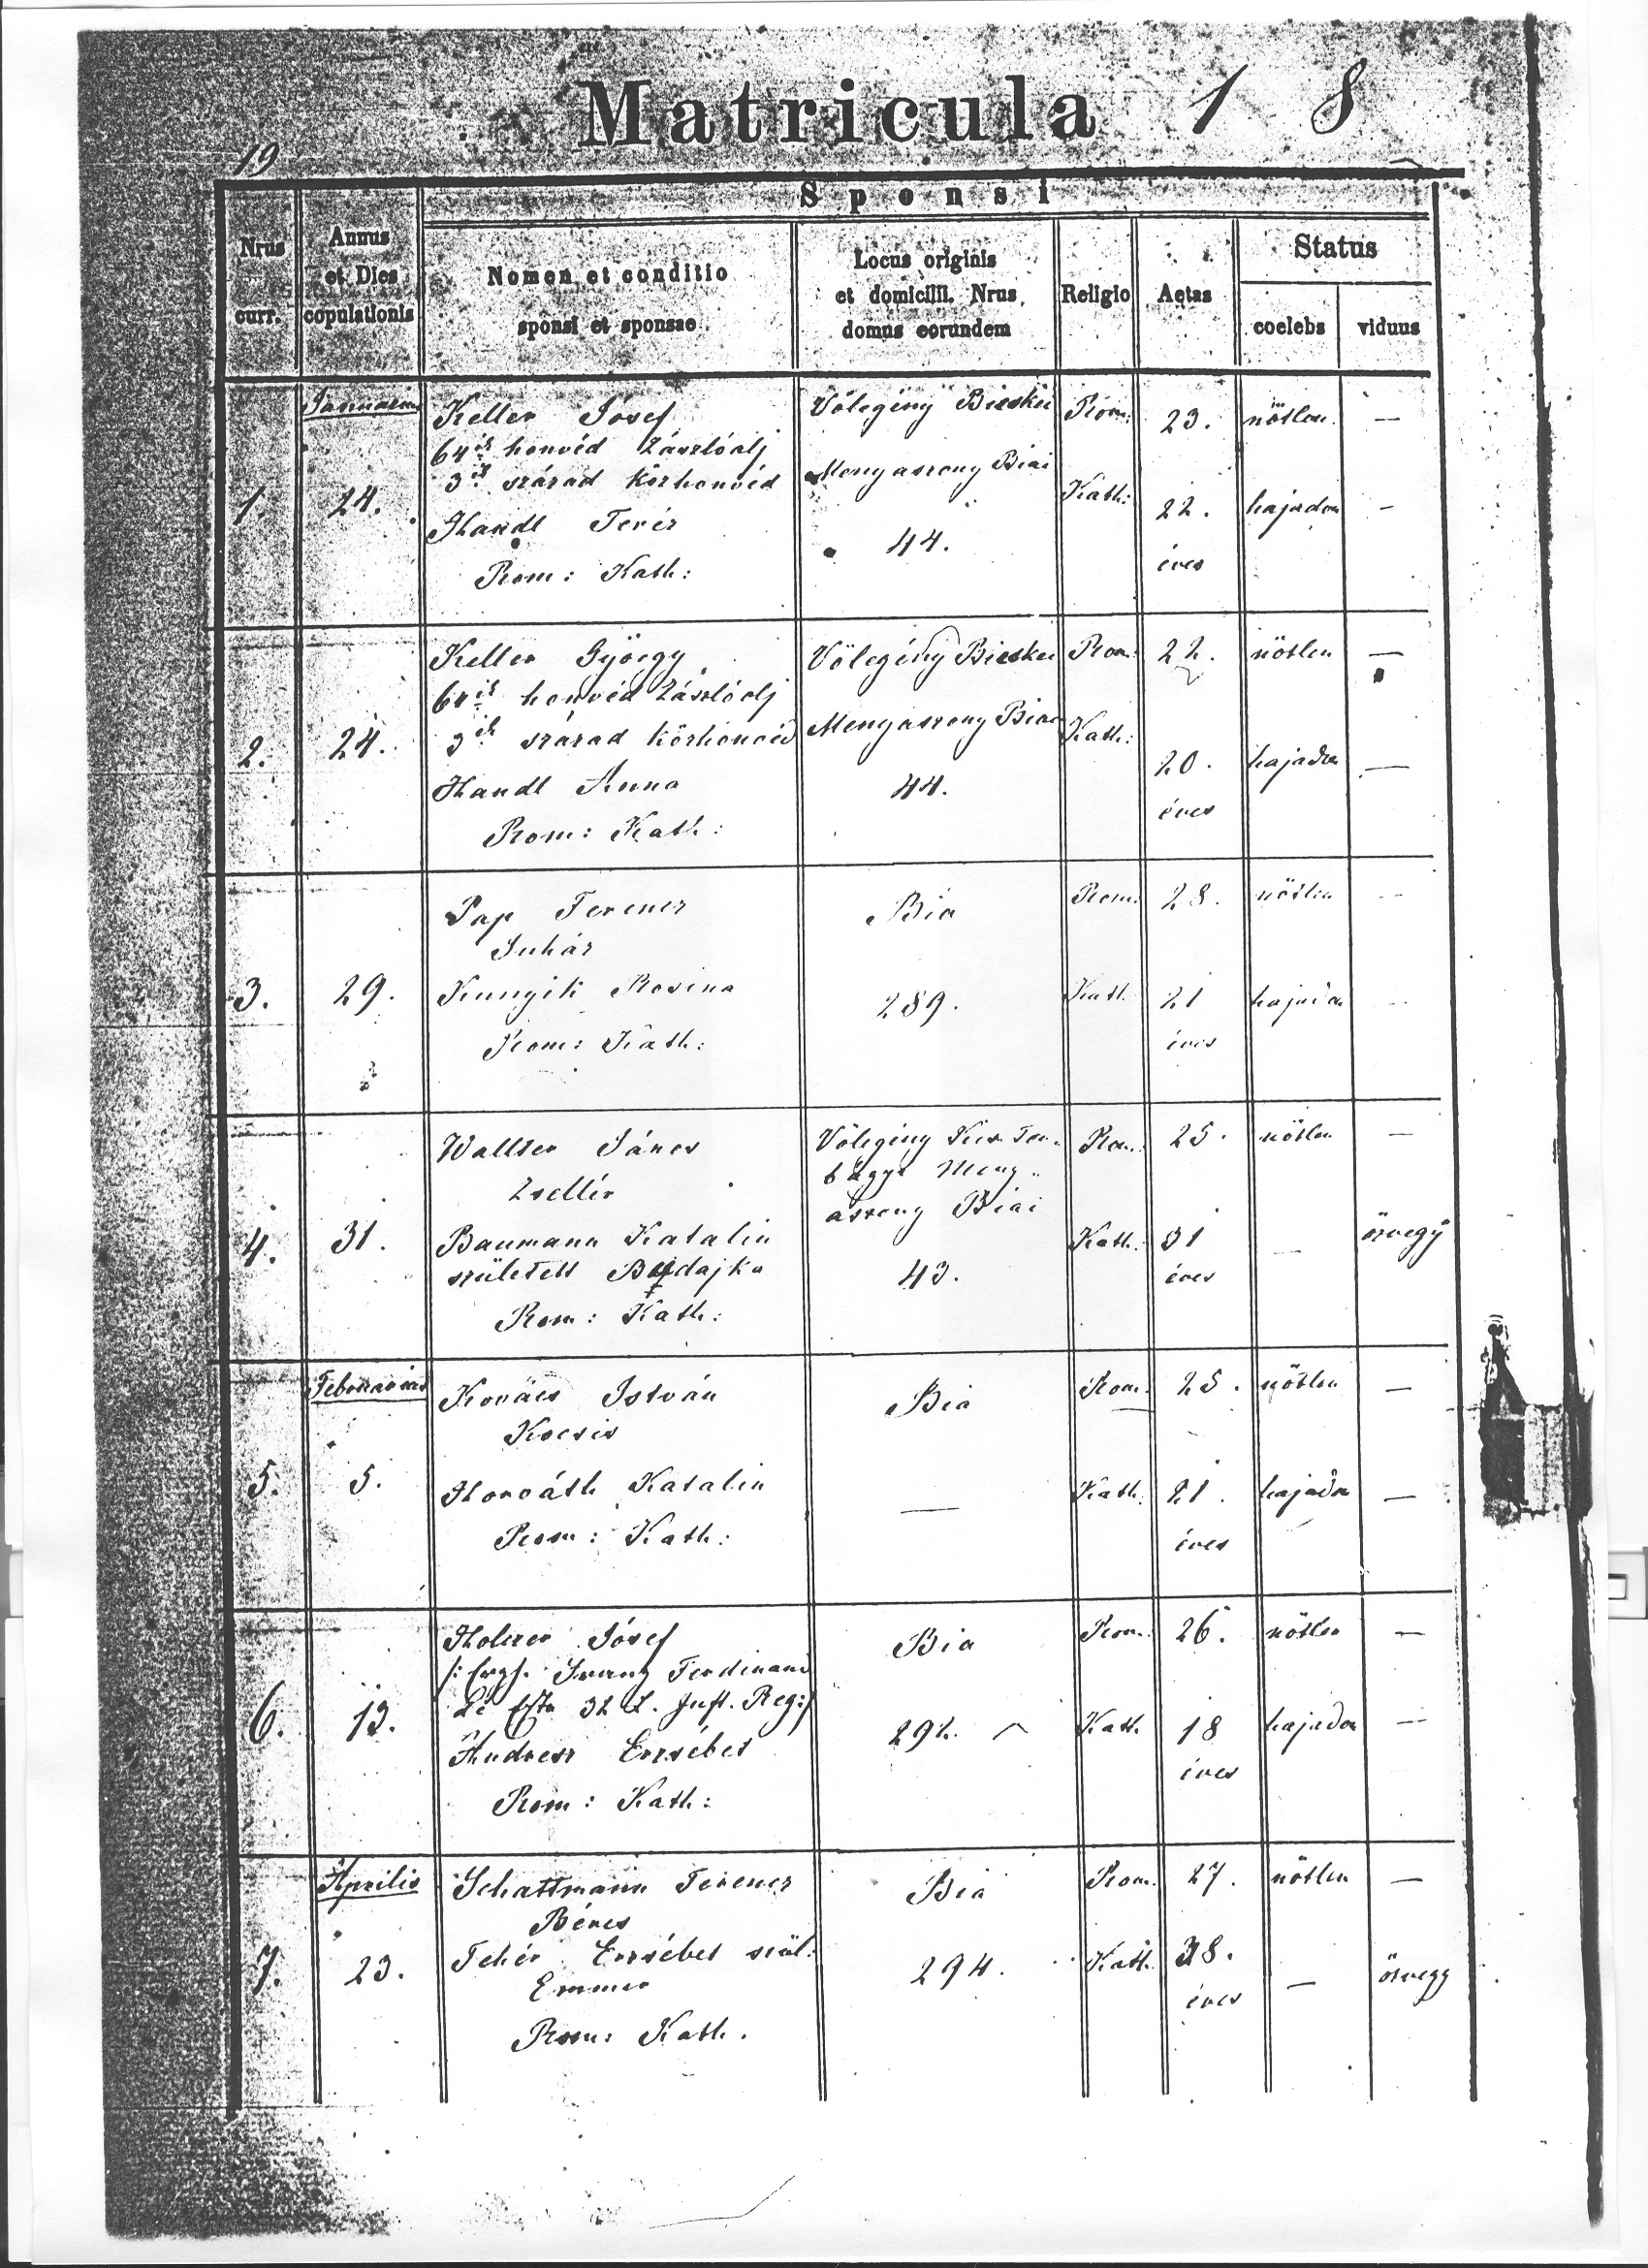 Matricula 1 8
19
Sponsi
Nrus curr.
Annus et Dies copulationis
Nomen et conditio sponsi et sponsae
Locus originis et domicilii. Nrus domus eorundem
Religio
Aetas
Status
coelebs
viduus
Januarius
1.
24.
Keller József
64ik honvéd Zászlóalj
3ik század közhonvéd
Handl Teréz
Rom: Kath:
Völegény Bicskei
Menyasszony Biai
44.
Rom:
Kath:
23.
22.
éves
nötlen
hajadon
—
—
2.
24.
Keller György
64ik honvéd Zászlóalj
3ik század közhonvéd
Handl Anna
Rom: Kath:
Völegény Bicskei
Menyasszony Biai
44.
Rom:
Kath:
22.
20.
éves
nötlen
hajadon
—
—
3.
29.
Pap Ferencz
Juház
Rosina
Rom: Kath:
Bia
289.
Rom:
Kath.
28.
21
éves
nötlen
hajadon
—
—
4.
31.
Wallter János
Zsellér
Baumann Katalin
született
Rom: Kath:
Völegény Kis Tor-
bágyi Meny-
asszony Biai
43.
Rom:
Kath:
25.
31
éves
nötlen
—
—
özvegy
Februarius
5.
5.
Kovács István
Kocsis
Horváth Katalin
Rom: Kath:
Bia
—
Rom:
Kath:
25.
21.
éves
nötlen
hajadon
—
—
6.
13.
Holczer József
Franz Ferdinand
32 Reg:
Andresz Erzsébet
Rom: Kath:
Bia
292.
Rom:
Kath.
26.
18
éves
nötlen
hajadon
—
—
Aprilis
7.
23.
Schattmann Ferencz
Béres
Fehér Erzsébet szül:
Emmer
Rom: Kath.
Bia
294.
Rom.
Kath.
27.
38.
éves
nötlen
—
—
özvegy